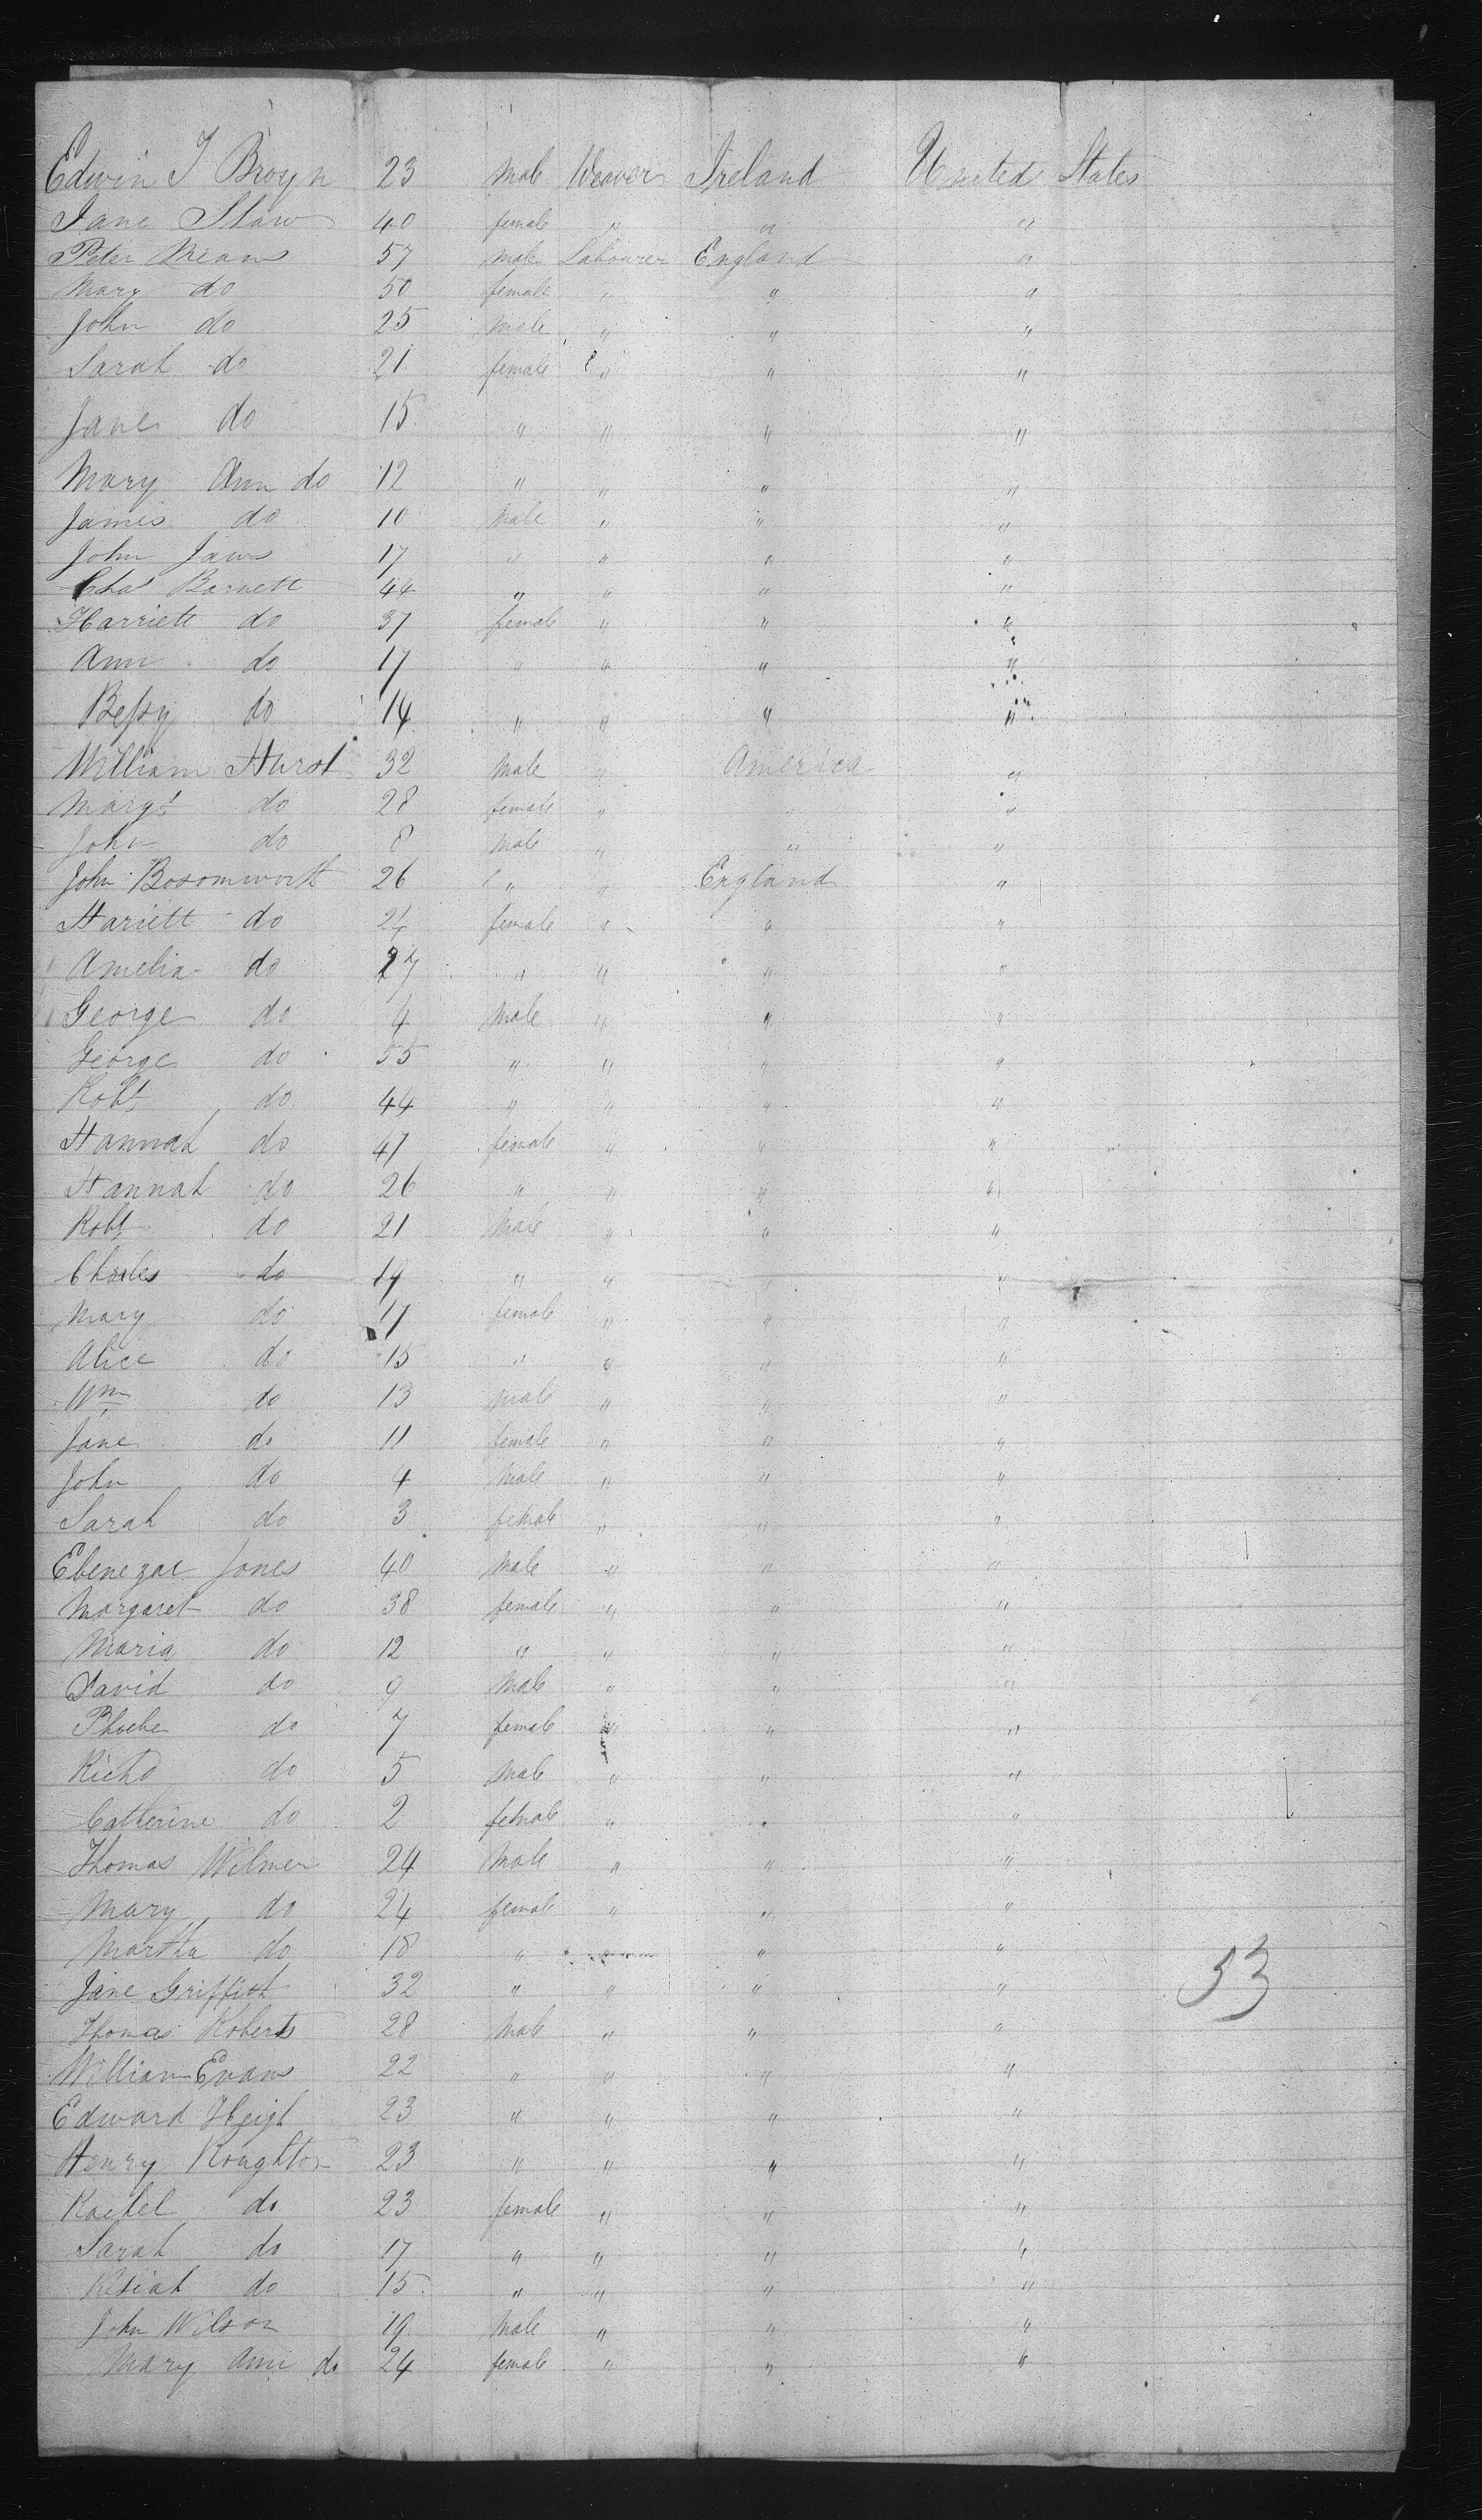 Edwin J Broyn 23 Male Weaver Ireland United States
Jane Shaw 40 female " " "
Peter Means 57 Male Labourer England "
Mary do 50 female " " "
John do 25 Male " " "
Sarah do 21 female " " "
Jane do 15 " " " "
Mary Ann do 12 " " " "
James do 10 Male " " "
John Jaws 17 " " " "
Chas Barnett 44 " " " "
Harriett do 37 female " " "
Ann do 17 " " " "
Bessy do 14 " " " "
William Hurst 32 Male " America "
Margt do 28 female " " "
John do 8 Male " " "
John Bosomworth 26 " " England "
Hariett do 24 female " " "
Amelia do 27 " " " "
George do 4 Male " " "
George do 55 " " " "
Robt do 44 " " " "
Hannah do 47 female " " "
Hannah do 26 " " " "
Robt do 21 Male " " "
Charles do 19 " " " "
Mary do 17 female " " "
Alice do 15 " " " "
Wm do 13 Male " " "
Jane do 11 female " " "
John do 4 Male " " "
Sarah do 3 female " " "
Ebenezar Jones 40 Male " " "
Margaret do 38 female " " "
Maria do 12 " " " "
David do 9 Male " " "
Phoebe do 7 female " " "
Richd do 5 Male " " "
Catherine do 2 female " " "
Thomas Wilmer 24 Male " " "
Mary do 24 female " " "
Martha do 18 " " " "
Jane Griffith 32 " " " "
53
Thomas Roberts 28 Male " " "
William Evans 22 " " " "
Edward Heigh 23 " " " "
Henry Roughton 23 " " " "
Rachel do 23 female " " "
Sarah do 17 " " " "
Kesiah do 15 " " " "
John Wilson 19 Male " " "
Mary Ann do 24 female " " "